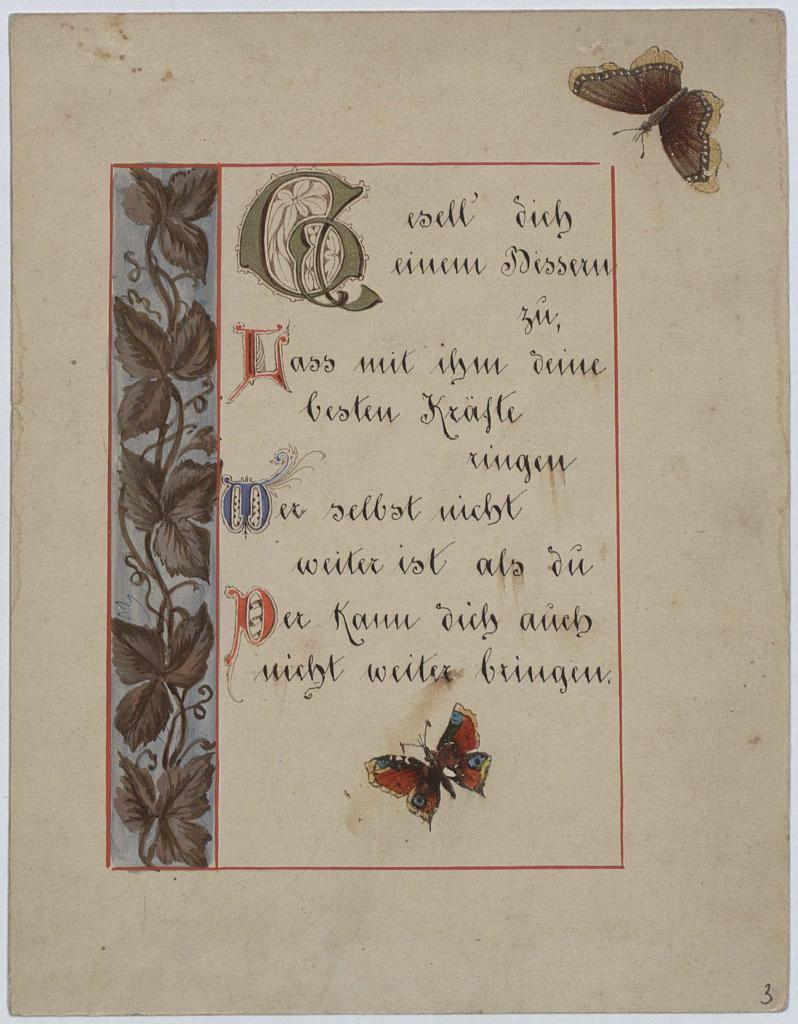 Gesell' dich
einem Bessern
zu,
Lass mit ihm deine
besten Kräfte
ringen
Wer selbst nicht
weiter ist als du
Der kann dich auch
nicht weiter bringen.
3